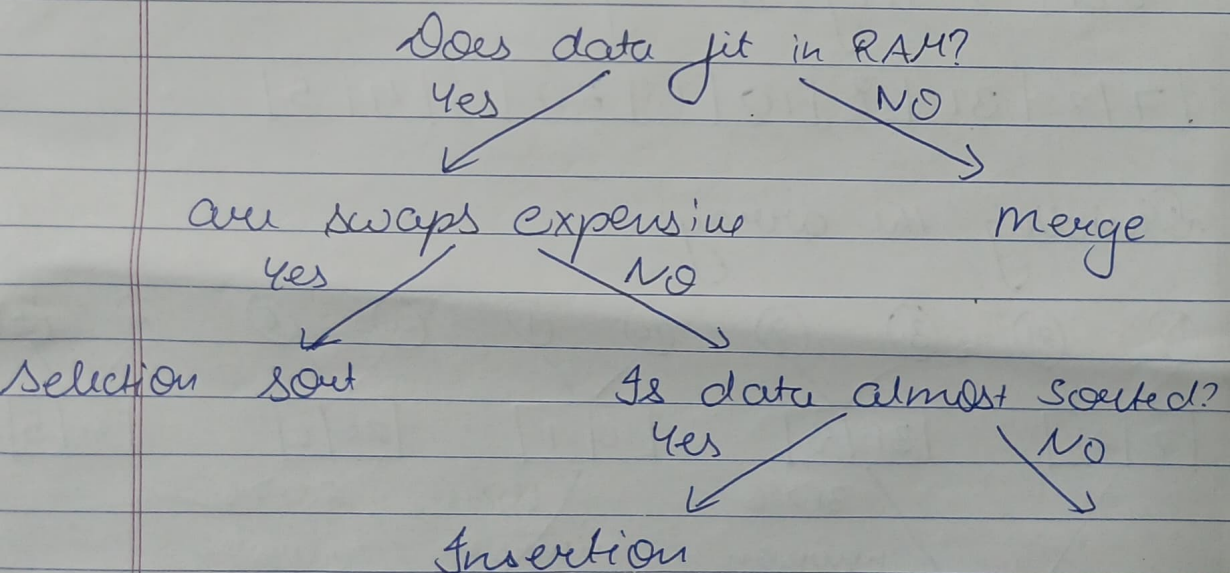 Does data fit in RAM?
Yes NO
are swaps expensive merge
Yes NO
selection sort Is data almost sorted?
Yes NO
Insertion